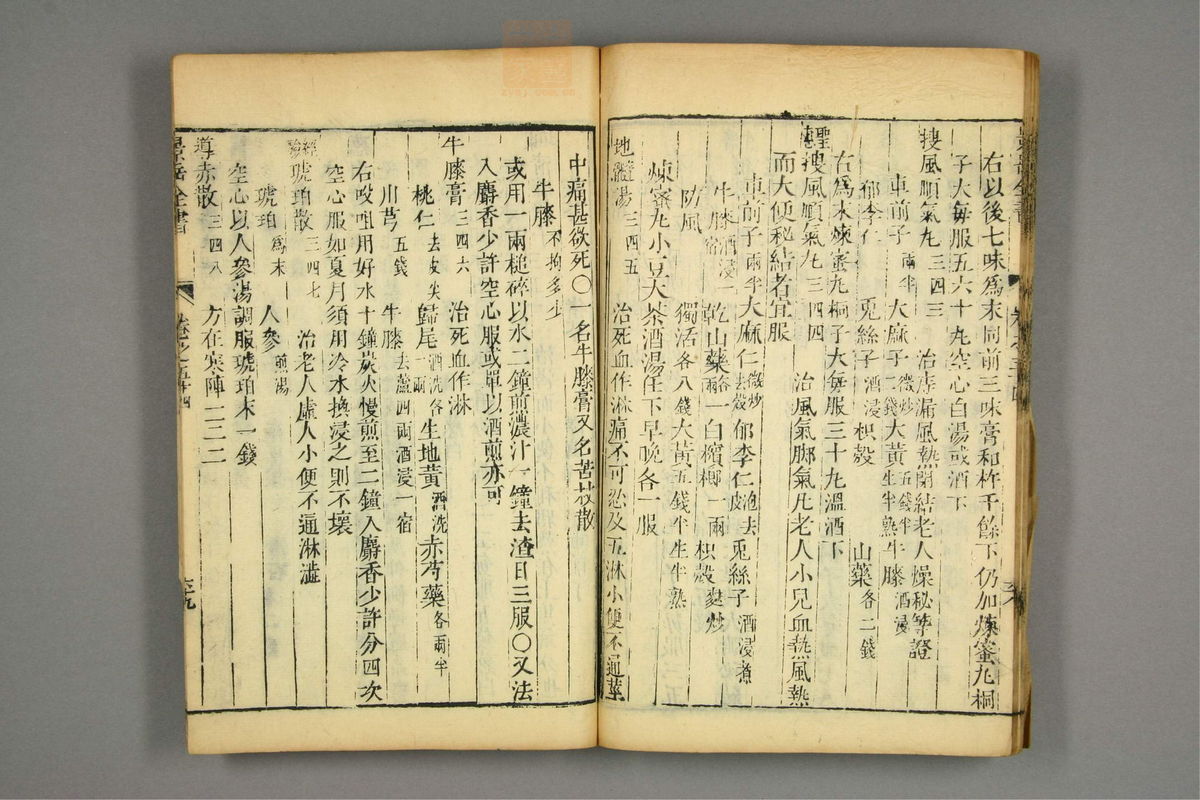 右以後七味爲末同前三味膏和杵千餘下仍加煉蜜丸桐
子大每服五六十丸空心白湯或酒下
搜風順氣丸 三四三 治痔漏風熱閉結老人燥秘等證
車前子 兩半 大麻子 微炒二錢 大黃 五錢半生半熟 牛膝 酒浸
郁李仁 菟絲子 酒浸 枳殼 山藥 各二錢
右爲末煉蜜丸桐子大每服三十丸溫酒下
聖惠搜風順氣丸 三四四 治風氣脚氣凡老人小兒血熱風熱
而大便秘結者宜服
車前子 兩半 大麻仁 微炒去殼 郁李仁 泡去皮 菟絲子 酒浸煮
牛膝 酒浸一宿 乾山藥 各一兩 白檳榔 一兩 枳殼 麩炒
防風 獨活 各八錢 大黃 五錢半生半熟
煉蜜丸小豆大茶酒湯任下早晚各一服
地髓湯 三四五 治死血作淋痛不可忍及五淋小便不通莖
中痛甚欲死〇一名牛膝膏又名苦杖散
牛膝 不拘多少
或用一兩槌碎以水二鐘煎濃汁一鐘去渣日三服〇又法
入麝香少許空心服或單以酒煎亦可
牛膝膏 三四六 治死血作淋
桃仁 去皮尖 歸尾 酒洗各一兩 生地黃 酒洗 赤芍藥 各兩半
川芎 五錢 牛膝 去蘆四兩酒浸一宿
右㕮咀用好水十鐘炭火慢煎至二鐘入麝香少許分四次
空心服如夏月須用冷水換浸之則不壞
經驗琥珀散 三四七 治老人虛人小便不通淋澁
琥珀 爲末 人參 煎湯
空心以人參湯調服琥珀末一錢
導赤散 三四八 方在寒陣一二二
景岳全書 卷之五十四 六十九